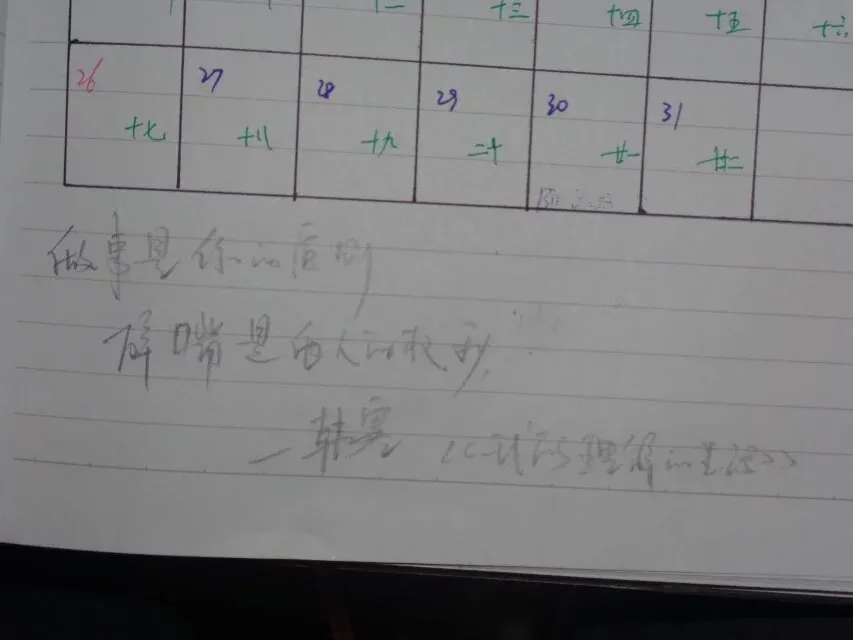 十二 十三 十四 十五 十六
26 27 28 29 30 31
十七 十八 十九 二十 廿一 廿二
做事是你的原则
碎嘴是人的权利
—韩寒《我所理解的生活》